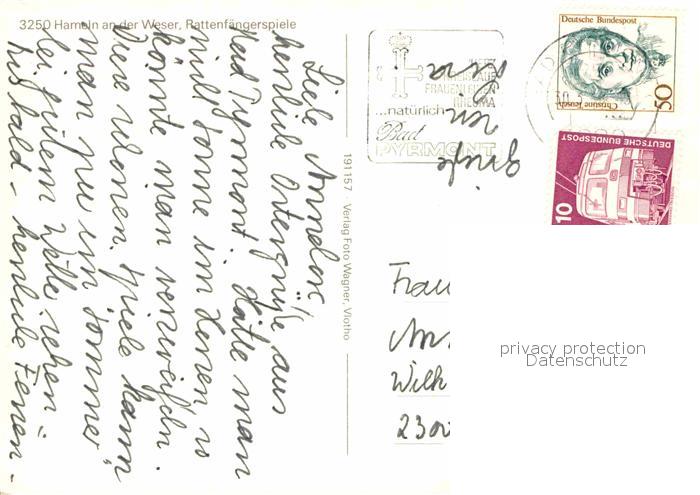 3250 Hameln an der Weser, Rattenfängerspiele
Liebe Annelore
herzliche Ostergrüße aus
Bad Pyrmont. Hätte man
nicht Sonne im Herzen so
könnte man verzweifeln.
Diese Spiele kann
man nur im Sommer
bei gutem Wetter sehen =
bis bald - herzliche Ferien
Grüße
von
191157 Verlag Foto Wagner, Vlotho
FRAUENLEIDEN
RHEUMA
...natürlich
Bad
PYRMONT
Deutsche Bundespost
Christine Teusch
50
DEUTSCHE BUNDESPOST
10
Frau
Wilh
2300
privacy protection
Datenschutz